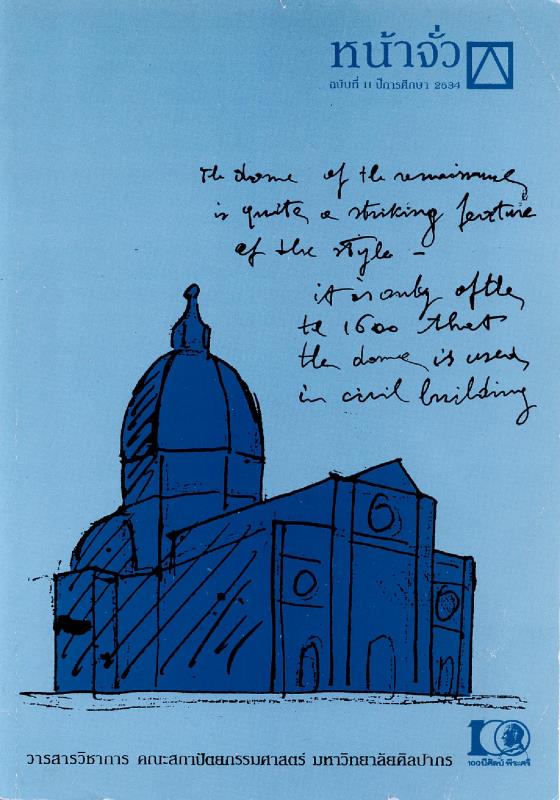 หน้าจั่ว
ฉบับที่ 11 ปีการศึกษา 2534
the dome of the renaissance
is quite a striking feature
of the style –
it is only after
the 1600 that
the dome is used
in civil building
วารสารวิชาการ คณะสถาปัตยกรรมศาสตร์ มหาวิทยาลัยศิลปากร
100
100 ปี ศิลป์ พีระศรี